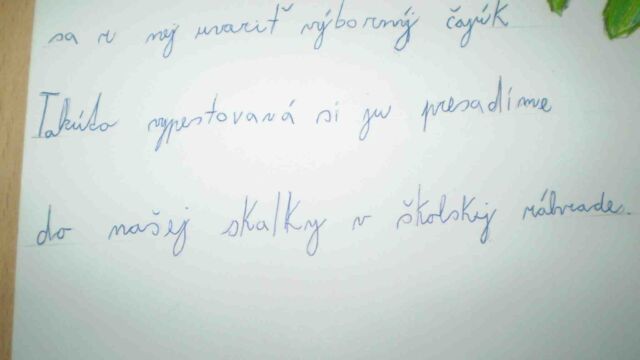 sa z nej uvariť výborný čajík
Takúto vypestovanú si ju presadíme
do našej skalky v školskej záhrade.